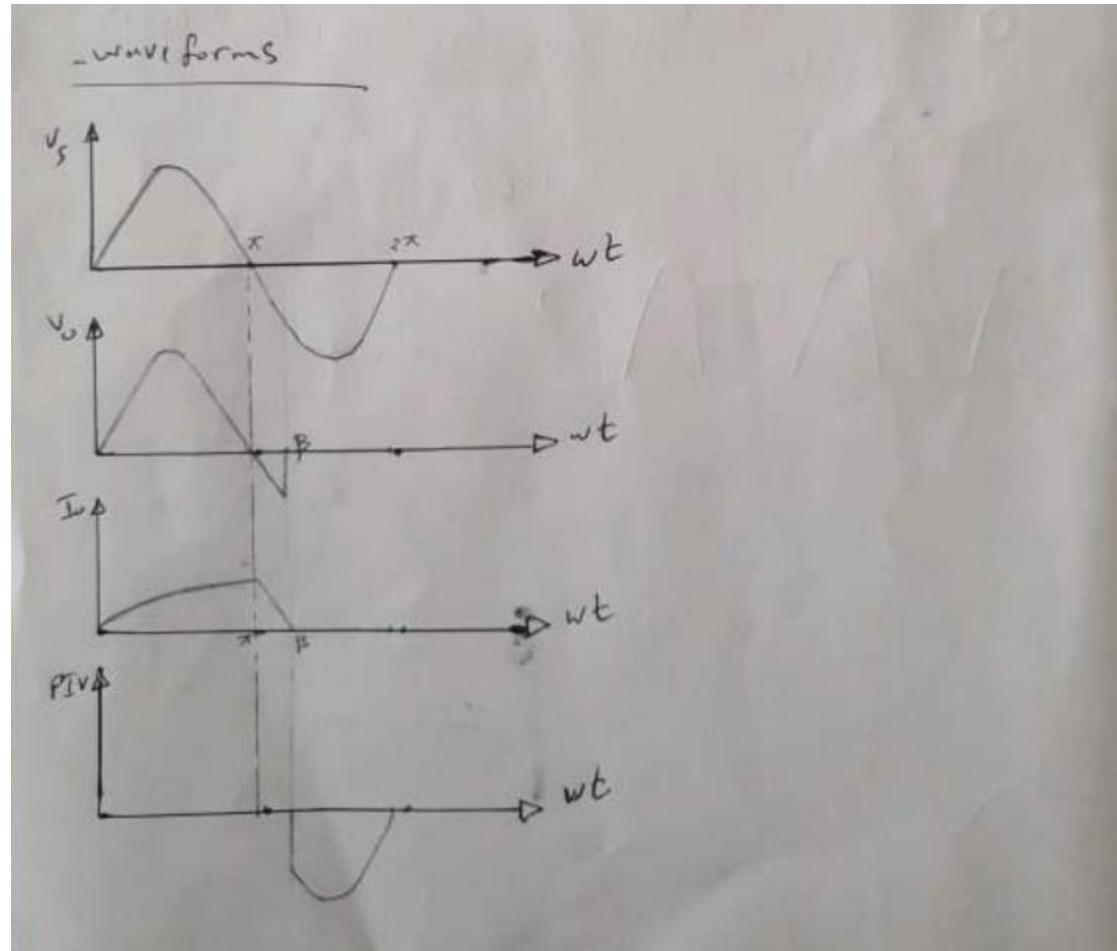 - waveforms
Vs
π
2π
wt
Vo
β
wt
Io
π
β
wt
PIV
wt